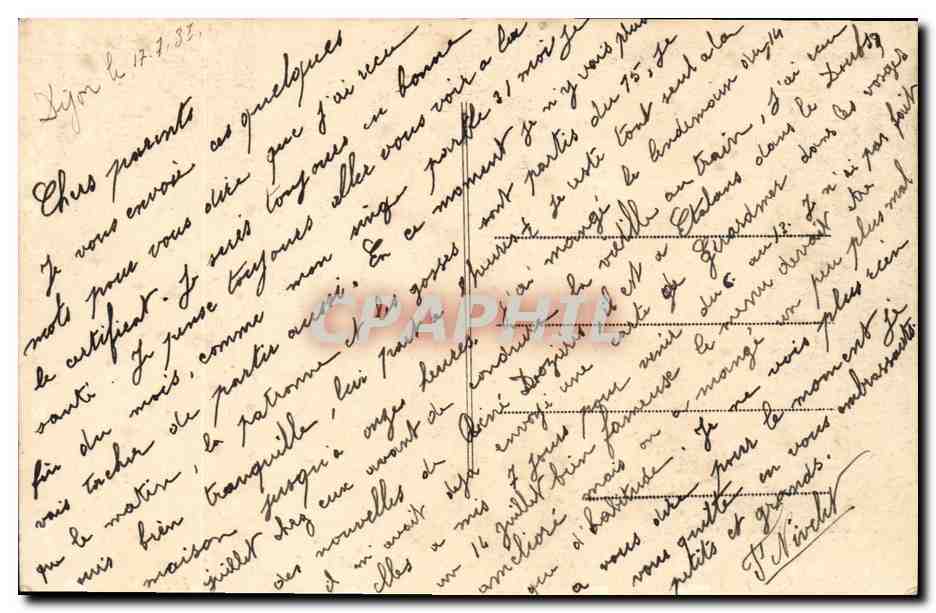 Dijon le 17.7.31.
Chers parents
Je vous envoie ces quelques
mots pour vous dire que j'ai reçu
le certificat. Je serais toujours en bonne
santé. Je pense toujours aller vous voir a la
fin du mois, comme mon sing part le 31 moi je
vais tacher de partir aussi. En ce moment je n'y vois plus
que le matin, la patronne et les gosses sont partis du 15, je
suis bien tranquille, lui part a 8 heures je reste tout seul a la
maison jusqu'a onze heures. J'ai mangé le lendemain du 14
juillet chez eux avant de conduire la vieille au train, j'ai reçu
des nouvelles de René il est a Etalans dans le Doubs,
il m'avait déja envoyé une carte de Gérardmer dans les vosges
elles a mis 7 jours pour venir du 6 au 12. Je n'ai pas fait
un 14 juillet bien fameuse le menu devait être
amélioré mais on a mangé un peu plus mal
que d'habitude. Je ne vois plus rien
a vous dire pour le moment je
vous quitte en vous embrassants
petits et grands.
CPAPHIL